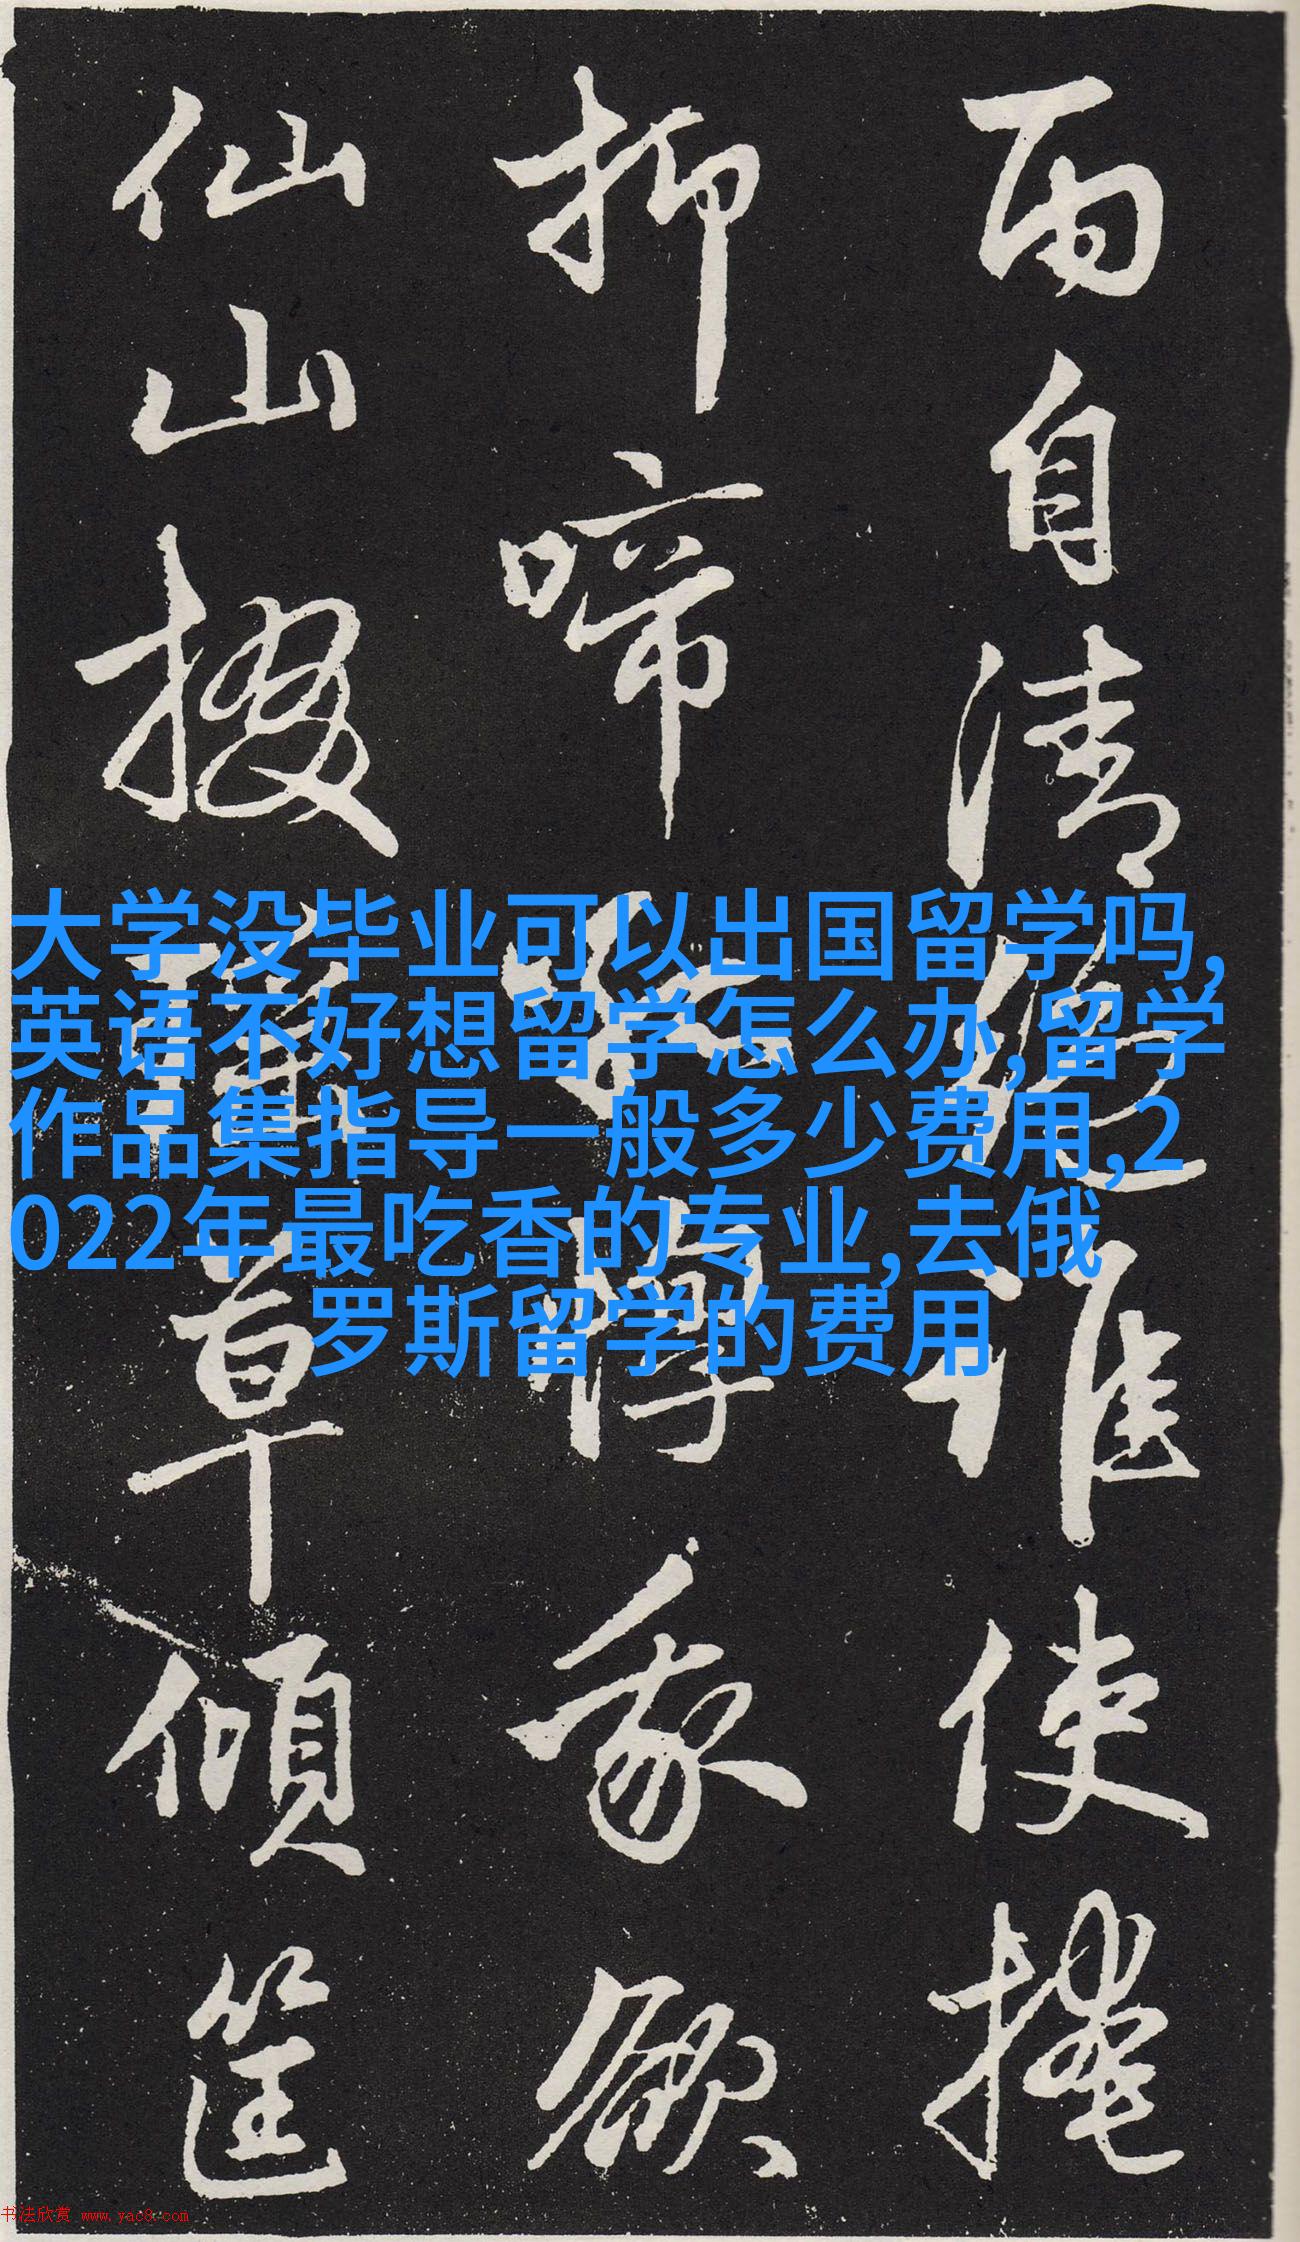 而自清絶誰使掩
抑啼
仙山掇瑶草傾筐
大学没毕业可以出国留学吗,
英语不好想留学怎么办,留学
作品集指导一般多少费用,2
022年最吃香的专业,去俄
罗斯留学的费用
书法欣赏 www.yac8.com